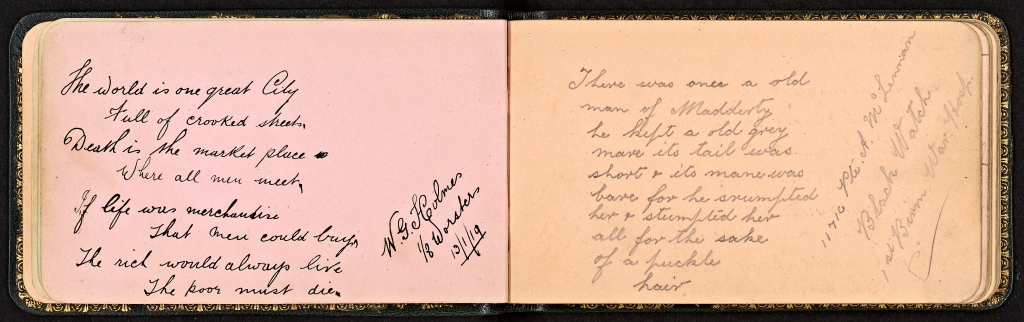 The world is one great City
Full of crooked streets,
Death is the market place
Where all men meet,
If life was merchandise
That men could buy,
The rich would always live
The poor must die.
W. G. Holmes
1/8 Worsters
13/1/19
There was once a old
man of Madderty
he kept a old grey
mare its tail was
short & its mane was
bare for he srumpted
her & stumpted her
all for the sake
of a puckle
hair
11716 Pte. A. McLennan
Black Watch
1st Birm. War Hosp.